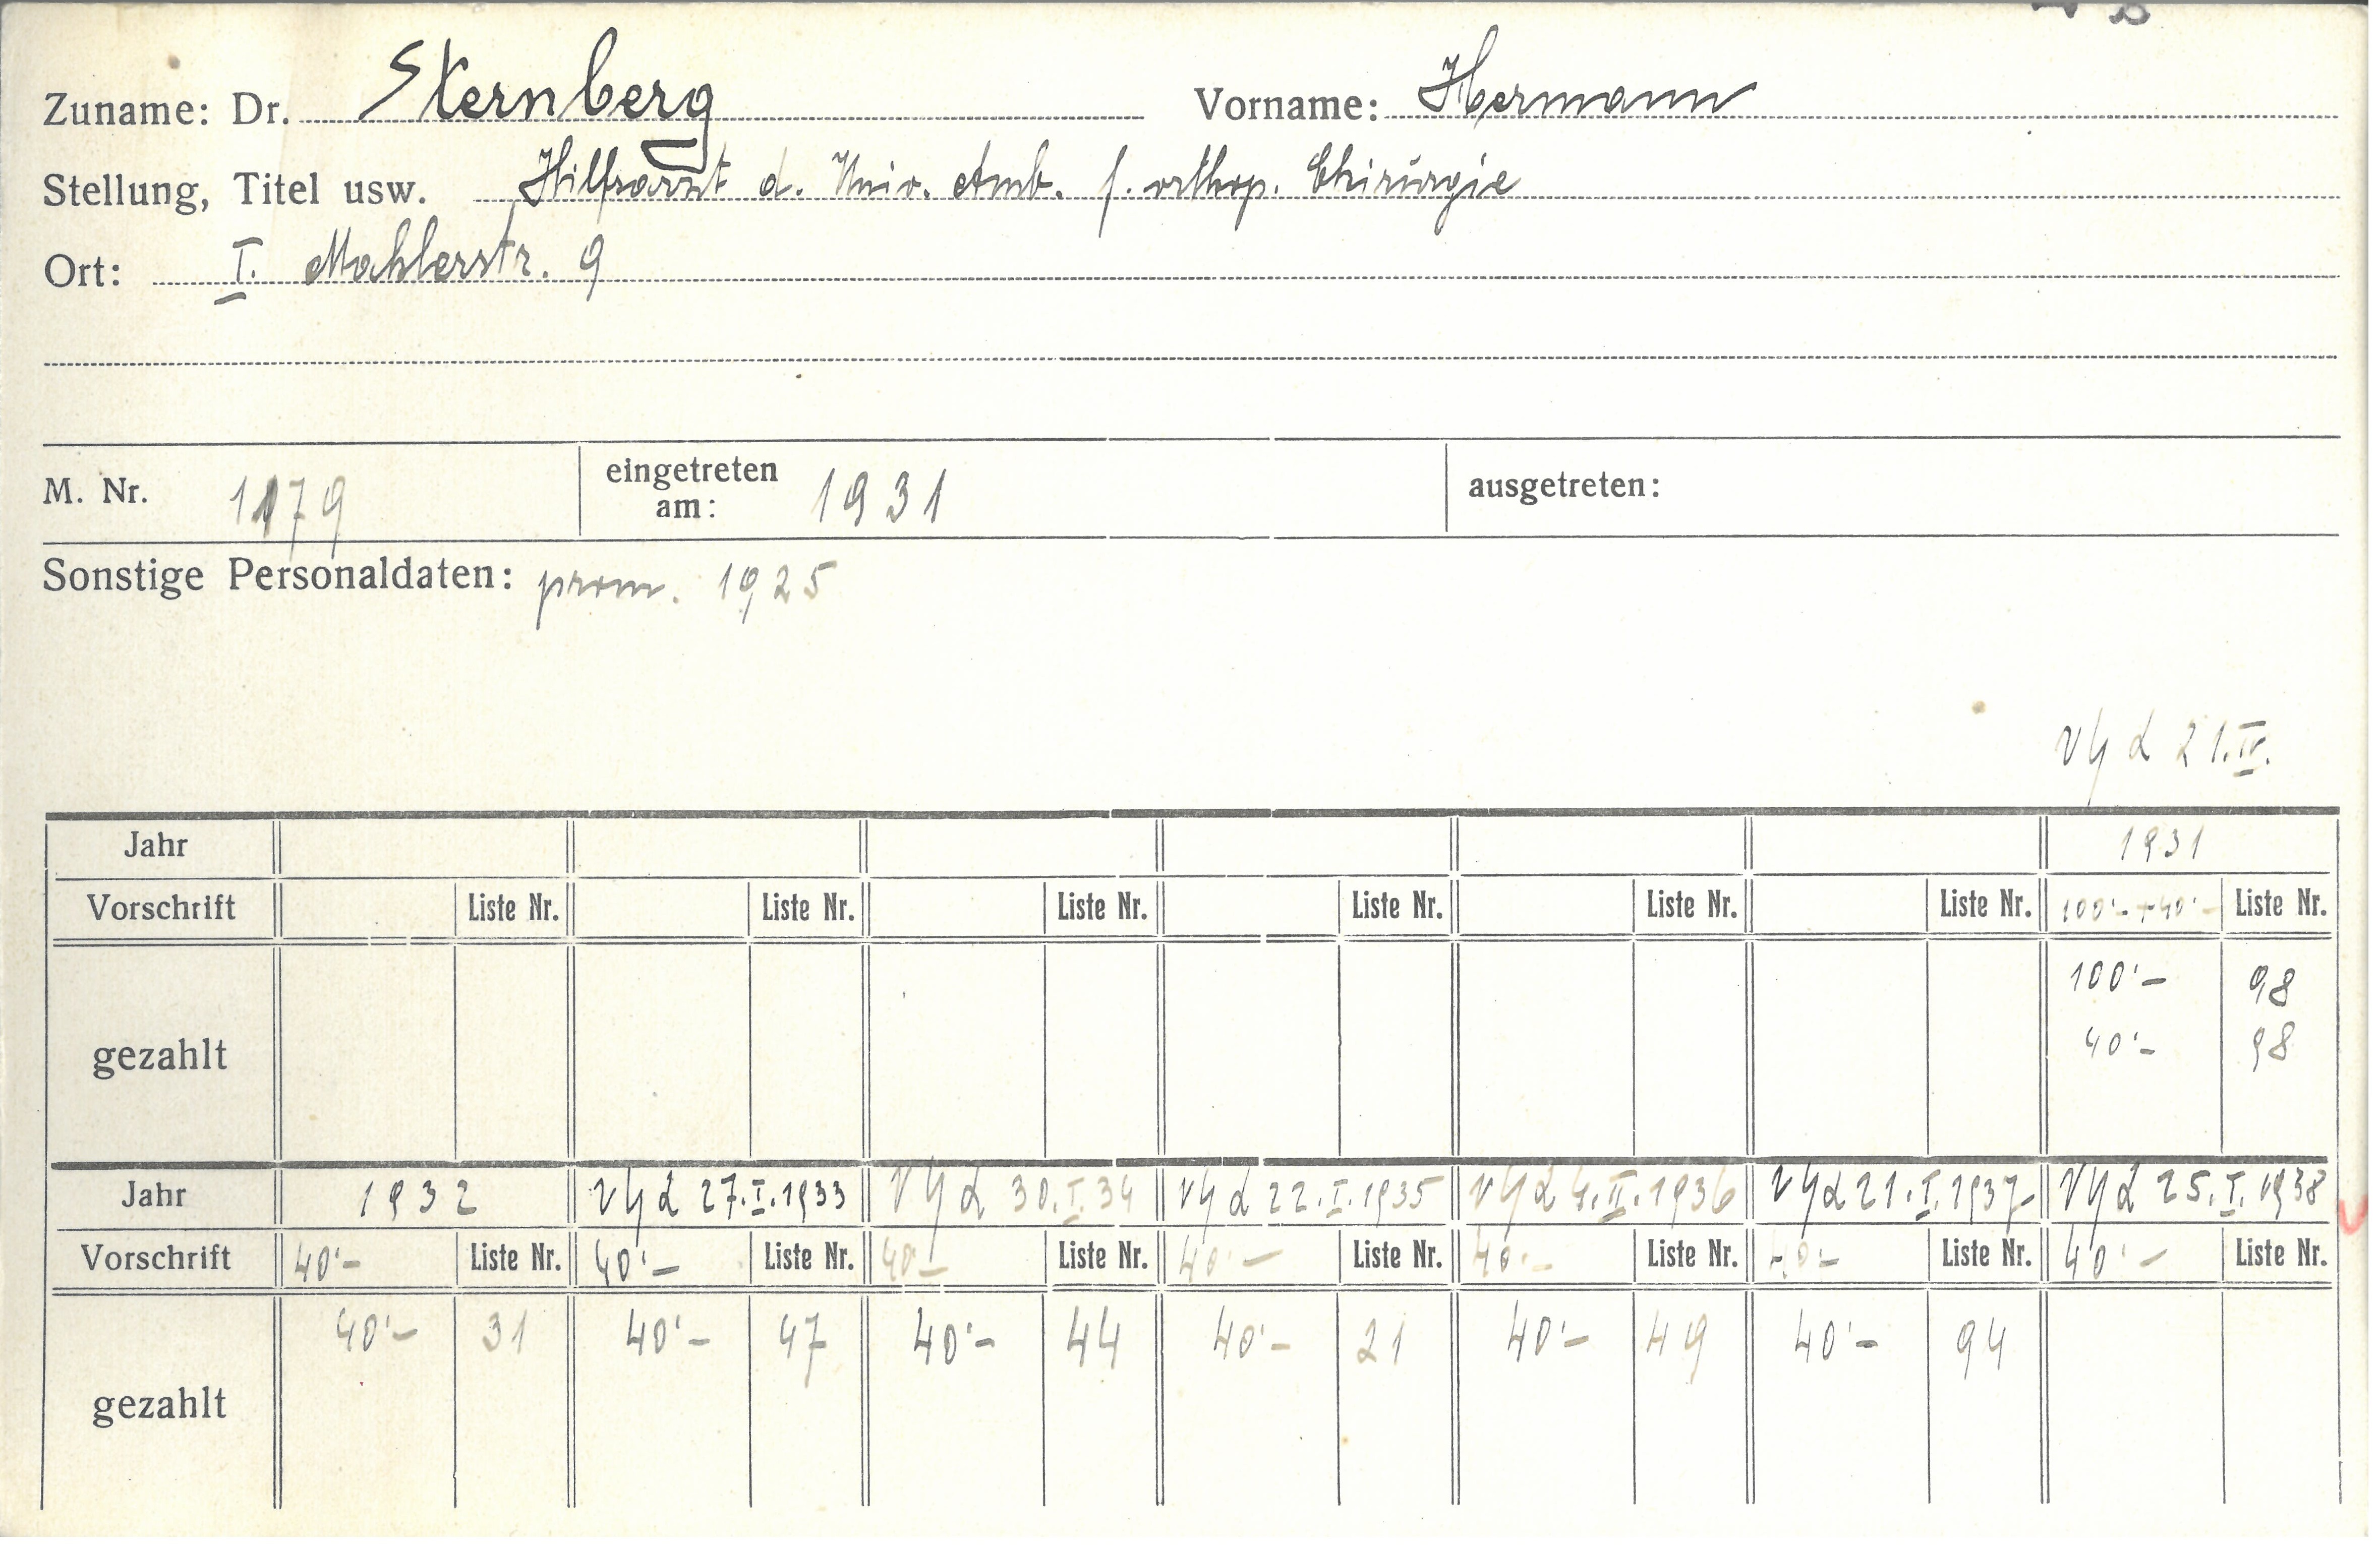 Zuname: Dr. Sternberg Vorname: Hermann
Stellung, Titel usw. Hilfsarzt d. Univ. Amb. f. orthop. Chirurgie
Ort: I. Mahlerstr. 9
M. Nr. 1179 eingetreten am: 1931 ausgetreten:
Sonstige Personaldaten: prom. 1925
21.IV.
Jahr 1931
Vorschrift Liste Nr. Liste Nr. Liste Nr. Liste Nr. Liste Nr. Liste Nr. 100'- + 40'- Liste Nr.
gezahlt 100'- 98
40'- 98
Jahr 1932 27.I.1933 30.I.34 22.I.1935 4.II.1936 21.I.1937 25.I.1938
Vorschrift 40'- Liste Nr. 40'- Liste Nr. 40'- Liste Nr. 40'- Liste Nr. 40'- Liste Nr. 40'- Liste Nr. 40'- Liste Nr.
gezahlt 40'- 31 40'- 47 40'- 44 40'- 21 40'- 49 40'- 94